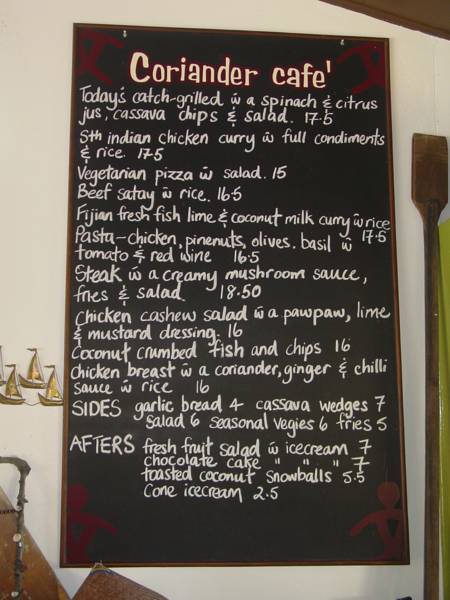 Coriander cafe'
Today's catch-grilled w̄ a spinach & citrus
jus, cassava chips & salad. 17.5
Sth indian chicken curry w̄ full condiments
& rice. 17.5
Vegetarian pizza w̄ salad. 15
Beef satay w̄ rice. 16.5
Fijian fresh fish lime & coconut milk curry w̄ rice
17.5
Pasta-chicken, pinenuts, olives. basil w̄
tomato & red wine 16.5
Steak w̄ a creamy mushroom sauce,
fries & salad. 18.50
Chicken cashew salad w̄ a pawpaw, lime
& mustard dressing. 16
Coconut crumbed fish and chips 16
Chicken breast w̄ a coriander, ginger & chilli
sauce w̄ rice 16
SIDES garlic bread 4 cassava wedges 7
salad 6 seasonal vegies 6 fries 5
AFTERS fresh fruit salad w̄ icecream 7
chocolate cake " " " 7
toasted coconut snowballs 5.5
Cone icecream 2.5